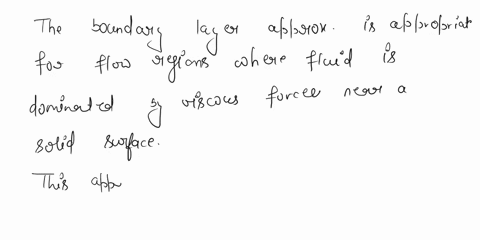 The boundary layer approx. is appropriat
for flow regions where fluid is
dominated by viscous forces near a
solid surface.
This app